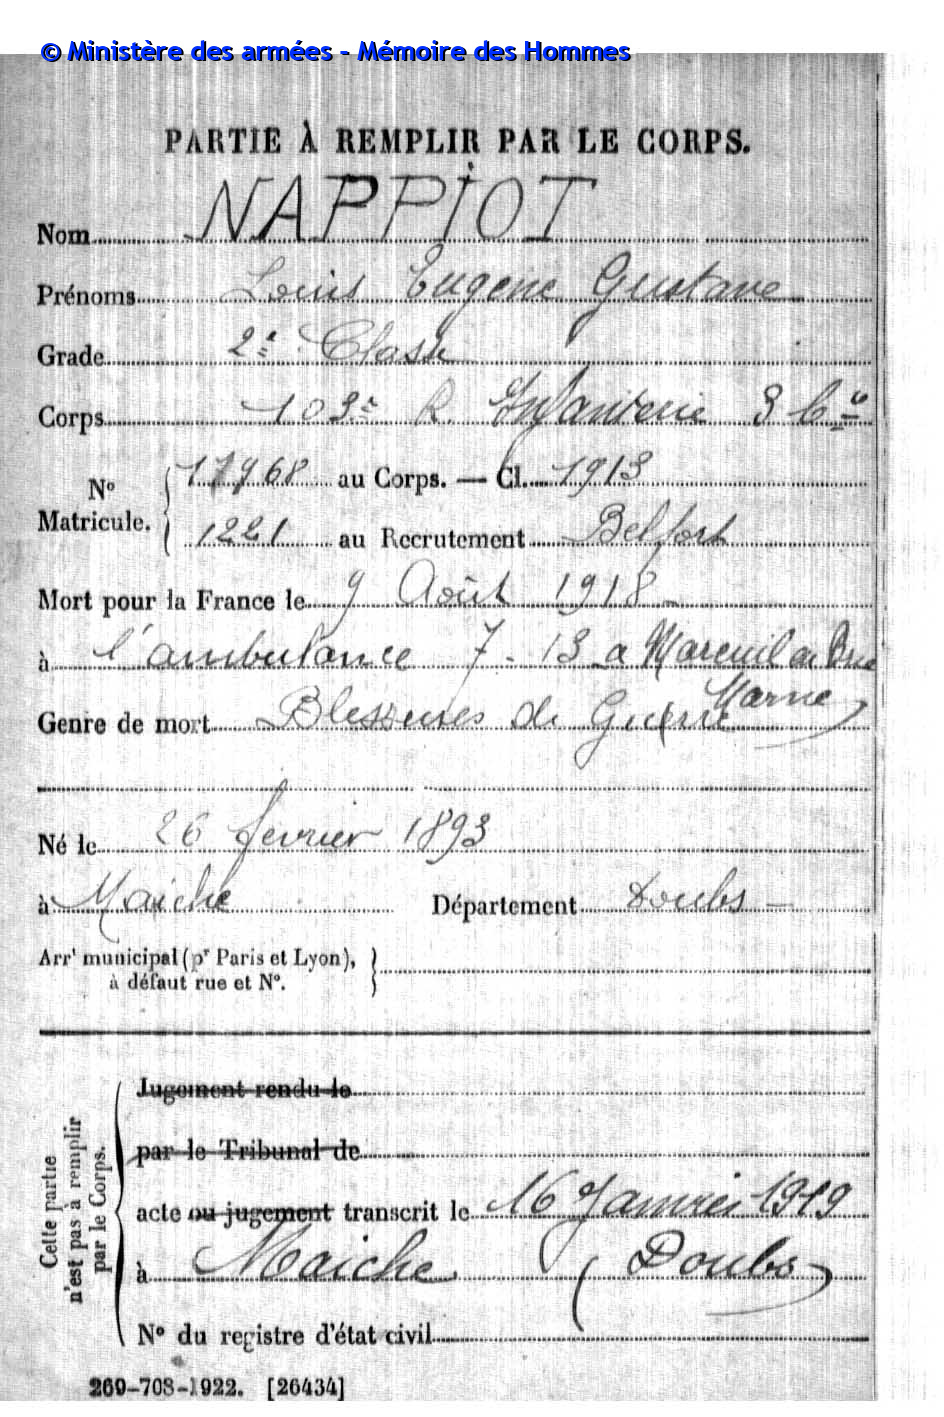 © Ministère des armées - Mémoire des Hommes
PARTIE À REMPLIR PAR LE CORPS.
Nom NAPPIOT
Prénoms Louis Eugène Gustave
Grade 2e Classe
Corps 103e R. Infanterie 3 Cie
No Matricule. { 17968 au Corps. — Cl. 1913
1221 au Recrutement Belfort
Mort pour la France le 9 Août 1918
à l'ambulance 7-13 a Mareuil en Brie
Marne
Genre de mort Blessures de Guerre
Né le 26 février 1893
à Maiche Département Doubs
Arrt municipal (pr Paris et Lyon), }
à défaut rue et No.
Cette partie n'est pas à remplir par le Corps.
Jugement rendu le
par le Tribunal de
acte ou jugement transcrit le 16 Janvier 1919
à Maiche (Doubs)
No du registre d'état civil
269-708-1922. [26434]